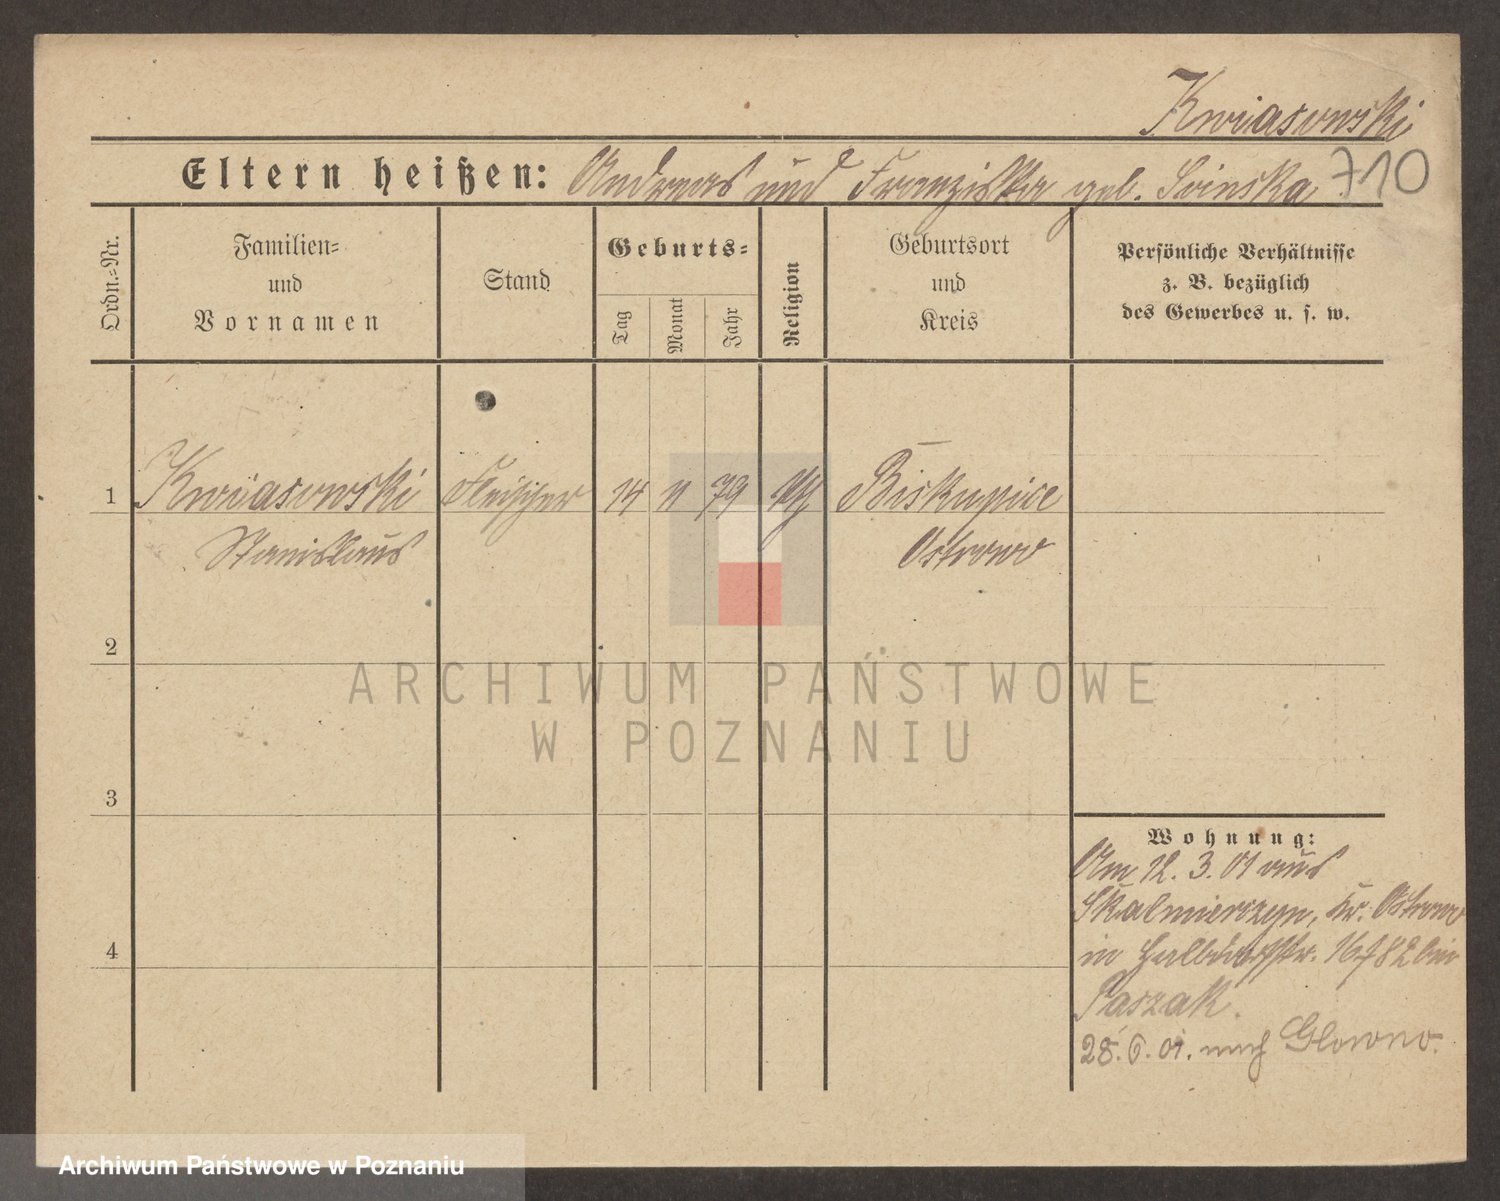 Kwiasowski
Eltern heißen: Andreas und Franziska geb. Soinska 710
Ordn.=Nr.
Familien=
und
Vornamen
Stand
Geburts=
Tag
Monat
Jahr
Religion
Geburtsort
und
Kreis
Persönliche Verhältnisse
z. B. bezüglich
des Gewerbes u. s. w.
1 Kwiasowski Fleischer 14 11 79 Biskupice
Stanislaus Ostrowo
2
3
4
Wohnung:
Am 12. 3. 01 aus
Skalmierczyn, Kr. Ostrowo
in Halbdorfstr. 16 bei
Paszak.
28. 6. 01. nach Glowno.
ARCHIWUM PAŃSTWOWE
W POZNANIU
Archiwum Państwowe w Poznaniu